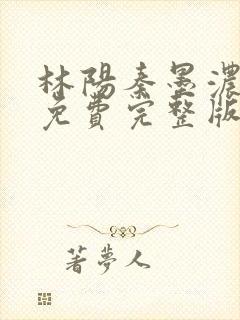 林陽秦墨濃
免費完整版
著夢人